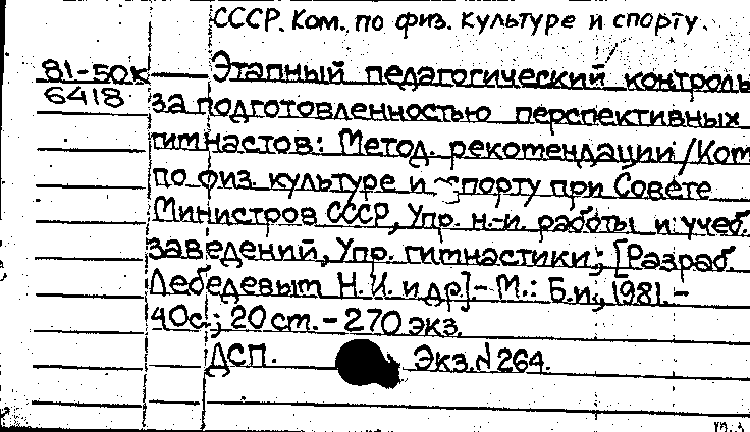 СССР. Ком. по физ. культуре и спорту.
81-50к Этапный педагогический контроль
6418 за подготовленностью перспективных
гимнастов: Метод. рекомендации / Ком
по физ. культуре и спорту при Совете
Министров СССР, Упр. н.-и. работы и учеб.
заведений, Упр. гимнастики; [Разраб.
Лебедевым Н.И. и др]. - М.: Б.и., 1981. -
40с.; 20 см. - 270 экз.
ДСП. Экз. N 264.